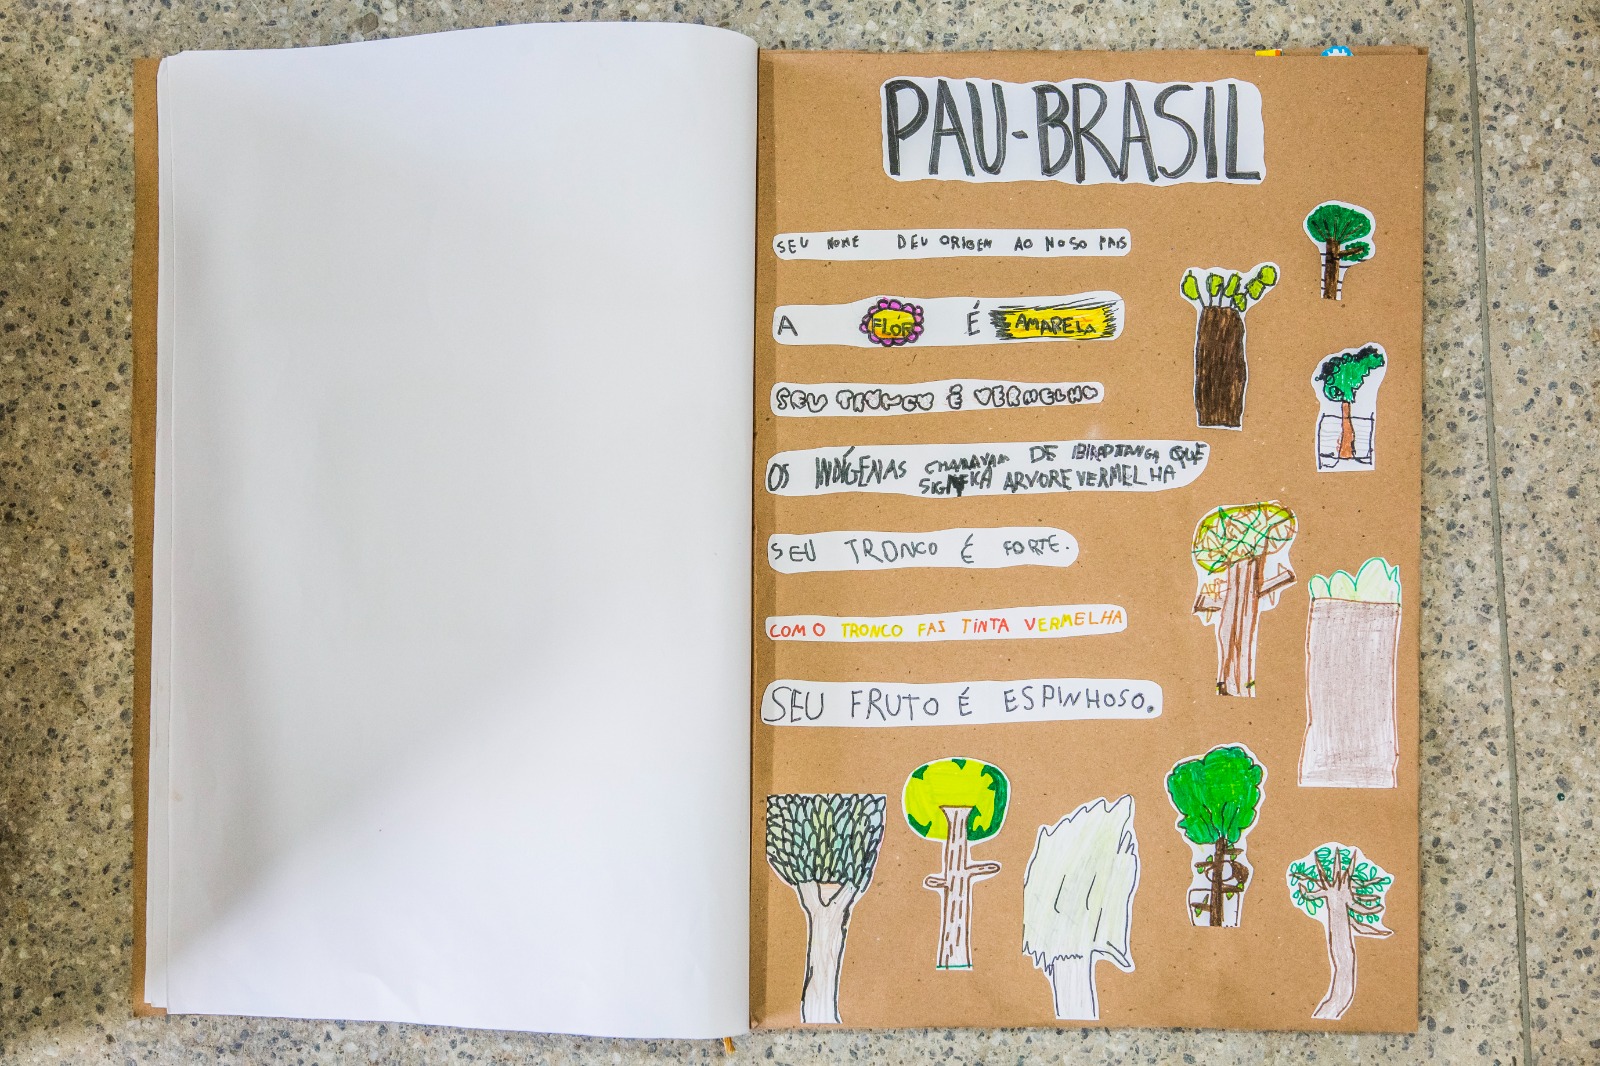 PAU-BRASIL
SEU NOME DEU ORIGEM AO NOSO PAIS
A FLOR É AMARELA
SEU TRONCO É VERMELHO
OS INDÍGENAS CHAMAVAM DE IBIRAPITANGA QUE
SIGNIFICA ARVORE VERMELHA
SEU TRONCO É FORTE.
COM O TRONCO FAS TINTA VERMELHA
SEU FRUTO É ESPINHOSO.